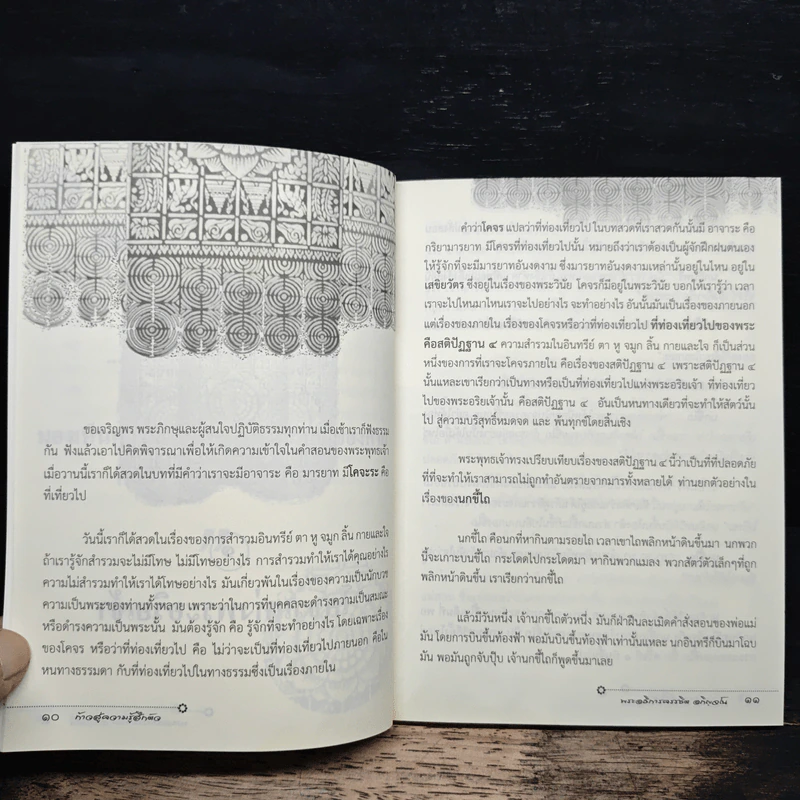 ขอเจริญพร พระภิกษุและผู้สนใจปฏิบัติธรรมทุกท่าน เมื่อเช้าเราก็ฟังธรรม
กัน ฟังแล้วเอาไปคิดพิจารณาเพื่อให้เกิดความเข้าใจในคำสอนของพระพุทธเจ้า
เมื่อวานนี้เราก็ได้สวดในบทที่มีคำว่าเราจะมีอาจาระ คือ มารยาท มีโคจะระ คือ
ที่เที่ยวไป
วันนี้เราก็ได้สวดในเรื่องของการสำรวมอินทรีย์ ตา หู จมูก ลิ้น กายและใจ
ถ้าเรารู้จักสำรวมจะไม่มีโทษ ไม่มีโทษอย่างไร การสำรวมทำให้เราได้คุณอย่างไร
ความไม่สำรวมทำให้เราได้โทษอย่างไร มันเกี่ยวพันในเรื่องของความเป็นนักบวช
ความเป็นพระของท่านทั้งหลาย เพราะว่าในการที่บุคคลจะดำรงความเป็นสมณะ
หรือดำรงความเป็นพระนั้น มันต้องรู้จัก คือ รู้จักที่จะทำอย่างไร โดยเฉพาะเรื่อง
ของโคจร หรือว่าที่ท่องเที่ยวไป คือ ไม่ว่าจะเป็นที่ท่องเที่ยวไปภายนอก คือใน
หนทางธรรมดา กับที่ท่องเที่ยวไปในทางธรรมซึ่งเป็นเรื่องภายใน
๑๐ ก้าวสู่ความรู้สึกตัว
คำว่าโคจร แปลว่าที่ท่องเที่ยวไป ในบทสวดที่เราสวดกันนั้นมี อาจาระ คือ
กริยามารยาท มีโคจรที่ท่องเที่ยวไปนั้น หมายถึงว่าเราต้องเป็นผู้จักฝึกฝนตนเอง
ให้รู้จักที่จะมีมารยาทอันงดงาม ซึ่งมารยาทอันงดงามเหล่านั้นอยู่ในไหน อยู่ใน
เสขิยวัตร ซึ่งอยู่ในเรื่องของพระวินัย โคจรก็มีอยู่ในพระวินัย บอกให้เรารู้ว่า เวลา
เราจะไปไหนมาไหนเราจะไปอย่างไร จะทำอย่างไร อันนั้นมันเป็นเรื่องของภายนอก
แต่เรื่องของภายใน เรื่องของโคจรหรือว่าที่ท่องเที่ยวไป ที่ท่องเที่ยวไปของพระ
คือสติปัฏฐาน ๔ ความสำรวมในอินทรีย์ ตา หู จมูก ลิ้น กายและใจ ก็เป็นส่วน
หนึ่งของการที่เราจะโคจรภายใน คือเรื่องของสติปัฏฐาน ๔ เพราะสติปัฏฐาน ๔
นั้นแหละเขาเรียกว่าเป็นทางหรือเป็นที่ท่องเที่ยวไปแห่งพระอริยเจ้า ที่ท่องเที่ยว
ไปของพระอริยเจ้านั้น คือสติปัฏฐาน ๔ อันเป็นหนทางเดียวที่จะทำให้สัตว์นั้น
ไป สู่ความบริสุทธิ์หมดจด และ พ้นทุกข์โดยสิ้นเชิง
พระพุทธเจ้าทรงเปรียบเทียบเรื่องของสติปัฏฐาน ๔ นี้ว่าเป็นที่ที่ปลอดภัย
ที่ที่จะทำให้เราสามารถไม่ถูกทำอันตรายจากมารทั้งหลายได้ ท่านยกตัวอย่างใน
เรื่องของนกขี้ไถ
นกขี้ไถ คือนกที่หากินตามรอยไถ เวลาเขาไถพลิกหน้าดินขึ้นมา นกพวก
นี้จะเกาะบนขี้ไถ กระโดดไปกระโดดมา หากินพวกแมลง พวกสัตว์ตัวเล็กๆที่ถูก
พลิกหน้าดินขึ้น เราเรียกว่านกขี้ไถ
แล้วมีวันหนึ่ง เจ้านกขี้ไถตัวหนึ่ง มันก็ฝ่าฝืนละเมิดคำสั่งสอนของพ่อแม่
มัน โดยการบินขึ้นท้องฟ้า พอมันบินขึ้นท้องฟ้าเท่านั้นแหละ นกอินทรีก็บินมาโฉบ
มัน พอมันถูกจับปุ๊บ เจ้านกขี้ไถก็พูดขึ้นมาเลย
๑๑